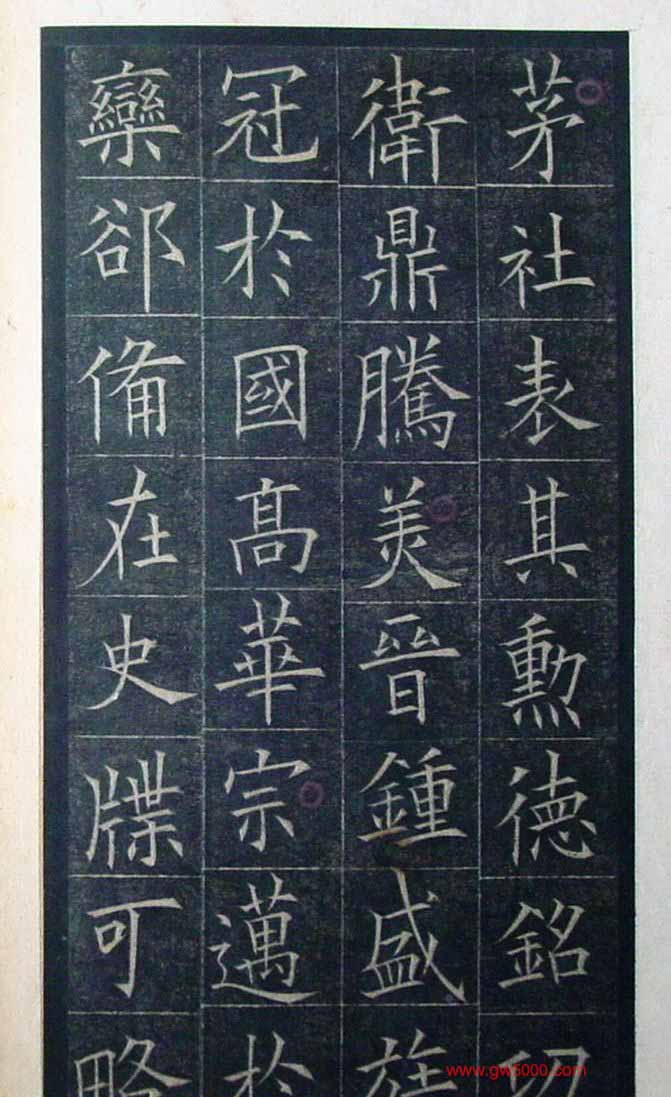 茅社表其勲德銘功
衛鼎騰美晉鍾盛族
冠於國髙華宗邁於
欒郤備在史牒可略
www.gw5000.com